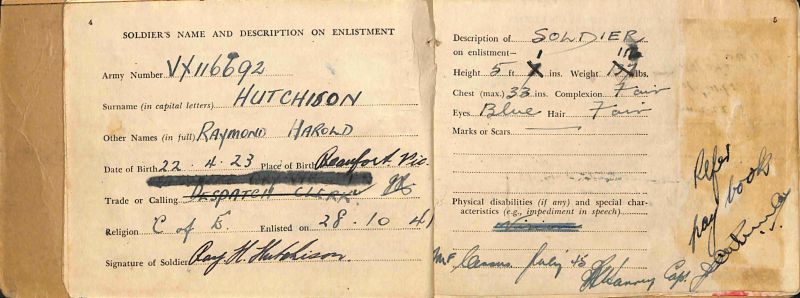 4
SOLDIER'S NAME AND DESCRIPTION ON ENLISTMENT
Army Number VX116692
Surname (in capital letters) HUTCHISON
Other Names (in full) RAYMOND HAROLD
Date of Birth 22.4.23 Place of Birth Beaufort Vic.
Trade or Calling DESPATCH CLERK
Religion C of E. Enlisted on 28.10.41
Signature of Soldier Ray H. Hutchison.
5
Description of SOLDIER
on enlistment—
Height 5 ft. 1 ins. Weight lbs.
Chest (max.) 33 ins. Complexion Fair
Eyes Blue Hair Fair
Marks or Scars
Physical disabilities (if any) and special char-
acteristics (e.g., impediment in speech)
Census July 45 Capt.
Refer
pay book